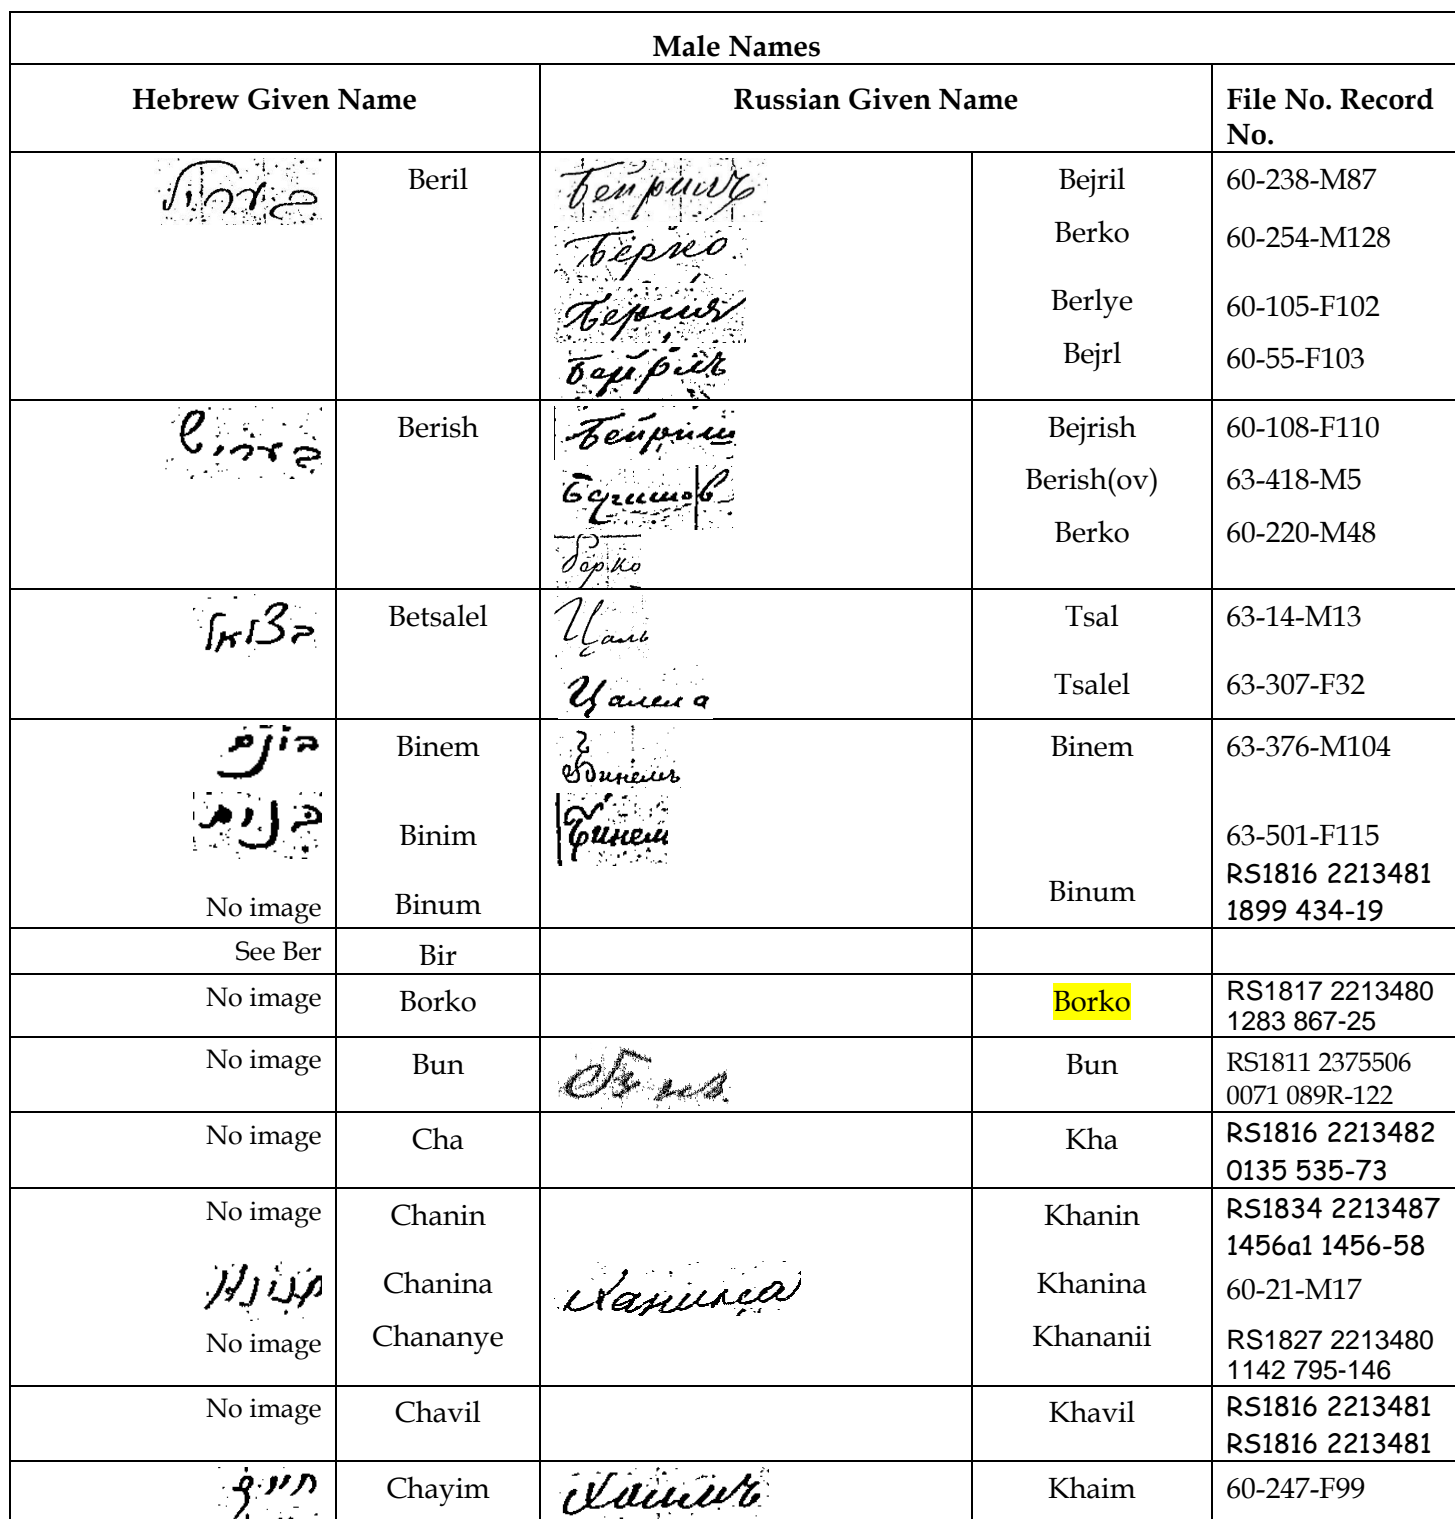 Male Names
Hebrew Given Name Russian Given Name File No. Record No.
בערעיל Beril Бейрилъ Bejril 60-238-M87
Берко Berko 60-254-M128
Berlye 60-105-F102
Бейрлъ Bejrl 60-55-F103
בעריש Berish Бейриш Bejrish 60-108-F110
Berish(ov) 63-418-M5
Берко Berko 60-220-M48
בצלאל Betsalel Цаль Tsal 63-14-M13
Цалела Tsalel 63-307-F32
בונם Binem Бинемъ Binem 63-376-M104
בנים Binim Бинем 63-501-F115
No image Binum Binum RS1816 2213481
1899 434-19
See Ber Bir
No image Borko Borko RS1817 2213480
1283 867-25
No image Bun Bun RS1811 2375506
0071 089R-122
No image Cha Kha RS1816 2213482
0135 535-73
No image Chanin Khanin RS1834 2213487
1456a1 1456-58
Chanina Ханина Khanina 60-21-M17
No image Chananye Khananii RS1827 2213480
1142 795-146
No image Chavil Khavil RS1816 2213481
RS1816 2213481
חיים Chayim Хаимъ Khaim 60-247-F99